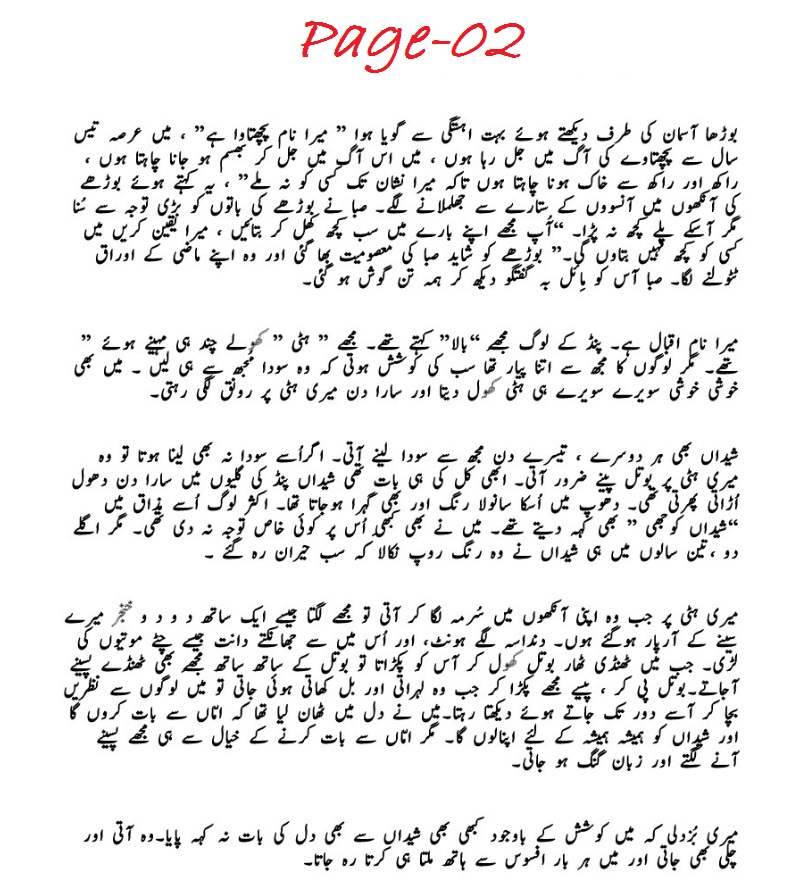 Page-02
بوڑھا آسمان کی طرف دیکھتے ہوئے بہت اہستگی سے گویا ہوا ” میرا نام پچھتاوا ہے” ، میں عرصہ تیس
سال سے پچھتاوے کی آگ میں جل رہا ہوں ، میں اس آگ میں جل کر بھسم ہو جانا چاہتا ہوں ،
راکھ اور راکھ سے خاک ہونا چاہتا ہوں تاکہ میرا نشان تک کسی کو نہ ملے” ، یہ کہتے ہوئے بوڑھے
کی آنکھوں میں آنسووں کے ستارے سے جھلملانے لگے۔ صبا نے بوڑھے کی باتوں کو بڑی توجہ سے سُنا
مگر آسکے پلے کچھ نہ پڑا۔ “آپ مجھے اپنے بارے میں سب کچھ کھل کر بتائیں ، میرا یقین کریں میں
کسی کو کچھ نہیں بتاوں گی۔” بوڑھے کو شاید صبا کی معصومیت بھا گئی اور وہ اپنے ماضی کے اوراق
ٹٹولنے لگا۔ صبا آس کو بائل بہ گفتگو دیکھ کر ہمہ تن گوش ہو گئی۔
میرا نام اقبال ہے۔ پنڈ کے لوگ مجھے “بالا” کہتے تھے۔ مجھے ” ہٹی ” کھولے چند ہی مہینے ہوئے ”
تھے۔ مگر لوگوں کا مجھ سے اتنا پیار تھا سب کی کوشش ہوتی کہ وہ سودا مجھ سے ہی لیں ۔ میں بھی
خوشی خوشی سویرے سویرے ہی ہٹی کھول دیتا اور سارا دن میری ہٹی پر رونق لگی رہتی۔
شیداں بھی ہر دوسرے ، تیسرے دن مجھ سے سودا لینے آتی۔ اگرأسے سودا نہ بھی لینا ہوتا تو وہ
میری ہٹی پر بوتل پینے ضرور آتی۔ ابھی کل کی ہی بات تھی شیداں پنڈ کی گلیوں میں سارا دن دھول
اُڑاتی پھرتی تھی۔ دھوپ میں اُسکا سانولا رنگ اور بھی گہرا ہوجاتا تھا۔ اکثر لوگ اُسے مذاق میں
“شیداں کوجھی ” بھی کہہ دیتے تھے۔ میں نے بھی کبھی اُس پر کوئی خاص توجہ نہ دی تھی۔ مگر اگلے
دو ،تین سالوں میں ہی شیداں نے وہ رنگ روپ نکالا کہ سب حیران رہ گئے ۔
میری ہٹی پر جب وہ اپنی آنکھوں میں سُرمہ لگا کر آتی تو مجھے لگتا جیسے ایک ساتھ د و د و خنجر میرے
سینے کے آرپار ہوگئے ہوں۔ دنداسہ لگے ہونٹ، اور اُس میں سے جھانکتے دانت جیسے چٹے موتیوں کی
لڑی۔ جب میں ٹھنڈی ٹھار بوتل کھول کر آس کو پکڑاتا تو بوتل کے ساتھ ساتھ مجھے بھی ٹھنڈے پسینے
آجاتے۔بوتل پی کر ، پیسے مجھے پکڑا کر جب وہ لہراتی اور بل کھاتی ہوئی جاتی تو میں لوگوں سے نظریں
بچا کر آسے دور تک جاتے ہوئے دیکھتا رہتا۔میں نے دل میں ٹھان لیا تھا کہ اماں سے بات کروں گا
اور شیداں کو ہمیشہ ہمیشہ کے لئے اپنالوں گا۔ مگر اماں سے بات کرنے کے خیال سے ہی مجھے پسینے
آنے لگتے اور زبان گنگ ہو جاتی۔
میری بُزدلی کہ میں کوشش کے باوجود کبھی بھی شیداں سے بھی دل کی بات نہ کہہ پایا۔وہ آتی اور
چلی بھی جاتی اور میں ہر بار افسوس سے ہاتھ ملتا ہی کرتا رہ جاتا۔